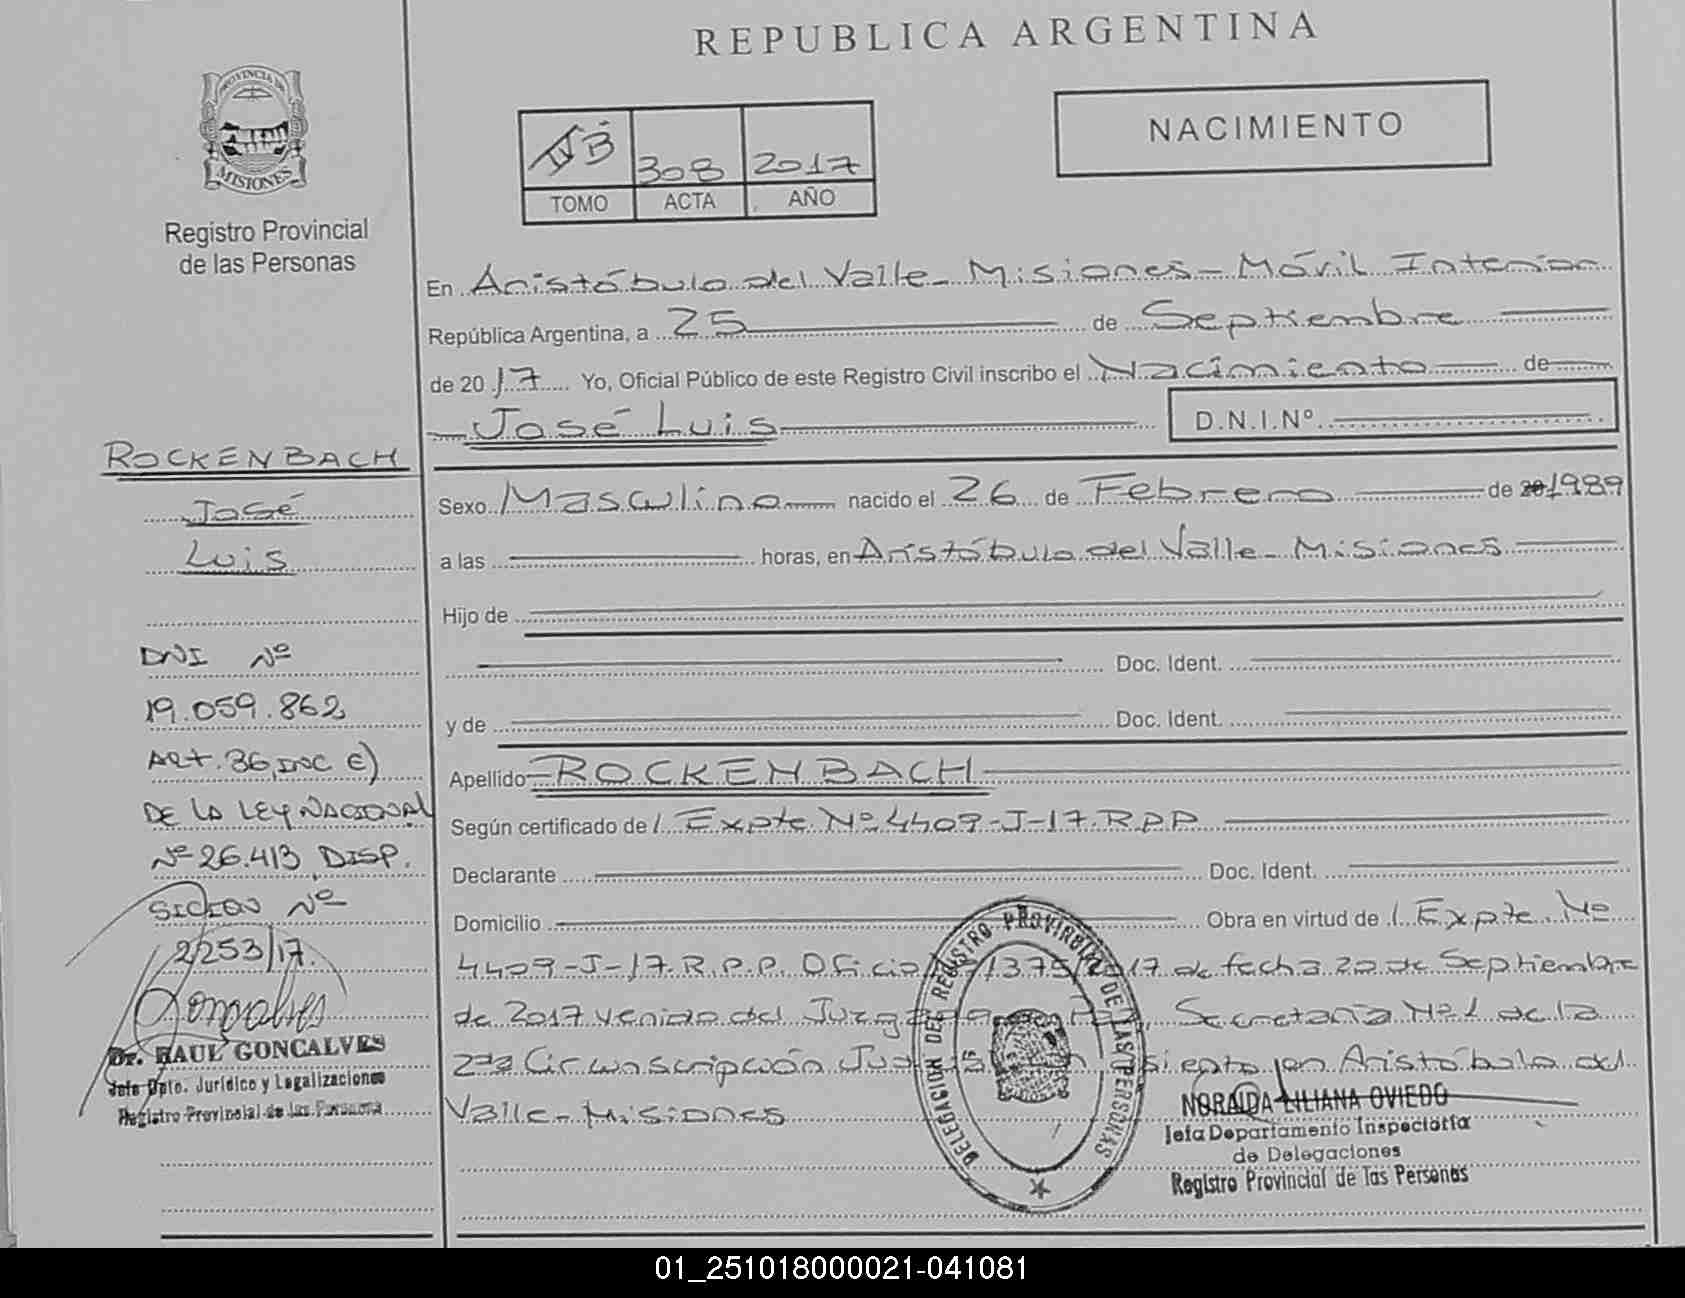 REPUBLICA ARGENTINA
PROVINCIA DE
MISIONES
Registro Provincial
de las Personas
NACIMIENTO
IV B 308 2017
TOMO ACTA AÑO
En Aristóbulo del Valle - Misiones - Móvil Interior
República Argentina, a 25 de Septiembre
de 2017 Yo, Oficial Público de este Registro Civil inscribo el Nacimiento de
José Luis D.N.I.Nº
ROCKENBACH
José
Luis
DNI Nº
19.059.862
ART. 36, INC E)
DE LA LEY NACIONAL
Nº 26.413, DISP.
SICION Nº
2253/17.
Goncalves
Dr. RAUL GONCALVES
Jefe Dpto. Jurídico y Legalizaciones
Registro Provincial de las Personas
Sexo Masculino nacido el 26 de Febrero de 20 1989
a las horas, en Aristóbulo del Valle - Misiones
Hijo de
Doc. Ident.
y de Doc. Ident.
Apellido ROCKENBACH
Según certificado de / Expte Nº 4409-J-17.R.P.P
Declarante Doc. Ident.
Domicilio Obra en virtud de / Expte. Nº
4409-J-17.R.P.P. Oficio 1375/2017 de fecha 20 de Septiembre
de 2017 venido del Secretaría Nº 1 de la
2da Circunscripción en Aristóbulo del
Valle - Misiones
DELEGACION DEL REGISTRO PROVINCIAL DE LAS PERSONAS
NORAIDA LILIANA OVIEDO
Jefa Departamento Inspectoría
de Delegaciones
Registro Provincial de las Personas
01_251018000021-041081